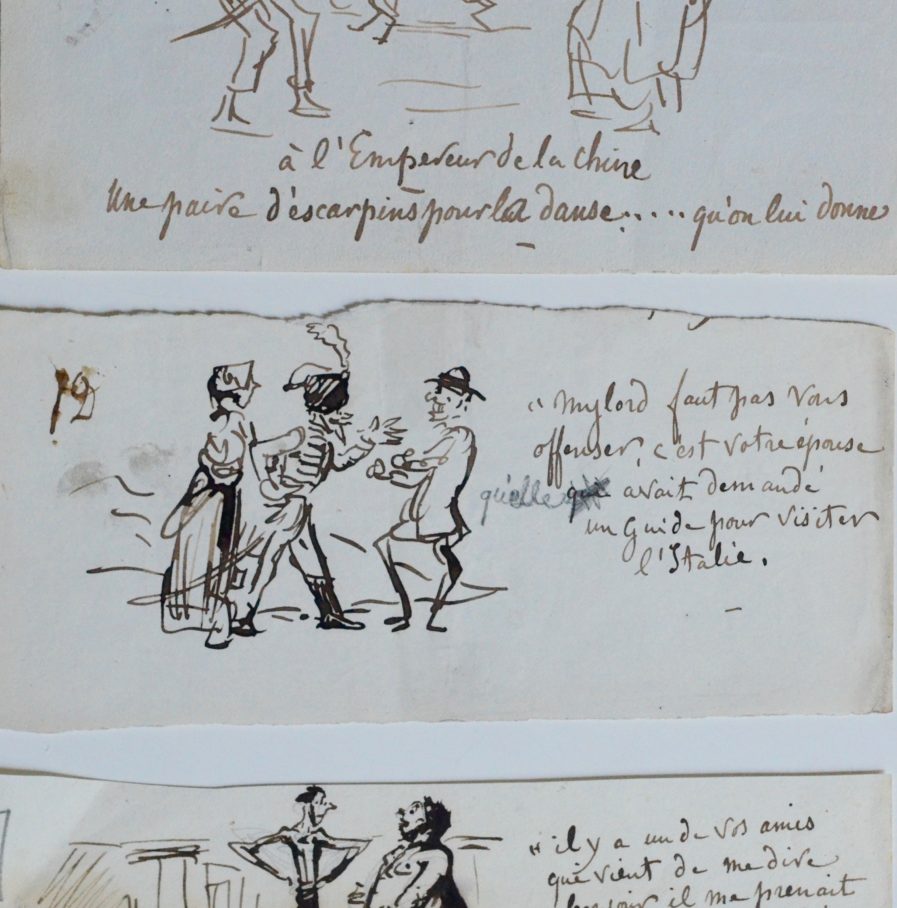 à l'Empereur de la Chine
Une paire d'éscarpins pour la danse..... qu'on lui donne
12
" Mylord faut pas vous
offenser, c'est votre épouse
qu'elle avait demandé
un Guide pour visiter
l'Italie.
" il y a un de vos amis
que vient de me dire
il me prenait